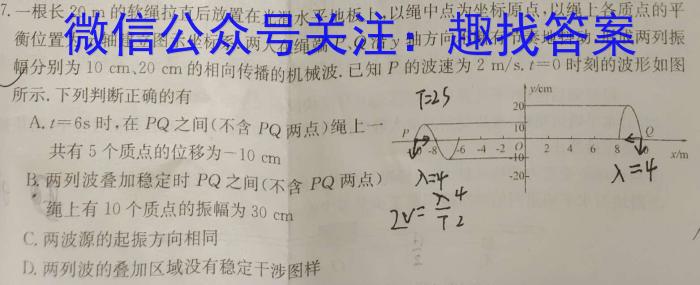 7.一根长20 m的软绳拉直后放置在光滑水平地板上,以绳中点为坐标原点,以绳上各质点的平
衡位置为
微信公众号关注:趣找答案
两人在绳端P、Q沿y轴方向
两列振
幅分别为10 cm、20 cm的相向传播的机械波.已知P的波速为2 m/s,t=0时刻的波形如图
所示.下列判断正确的有
A.t=6s时,在PQ之间(不含PQ两点)绳上一
共有5个质点的位移为-10 cm
B.两列波叠加稳定时PQ之间(不含PQ两点)
绳上有10个质点的振幅为30 cm
C.两波源的起振方向相同
D.两列波的叠加区域没有稳定干涉图样
T=2S
y/cm
20
10
P
-8 -6 -4 -2 O 2 4 6 8
Q
x/m
-10
-20
λ=4
λ=4
2V=λ/T 4/2